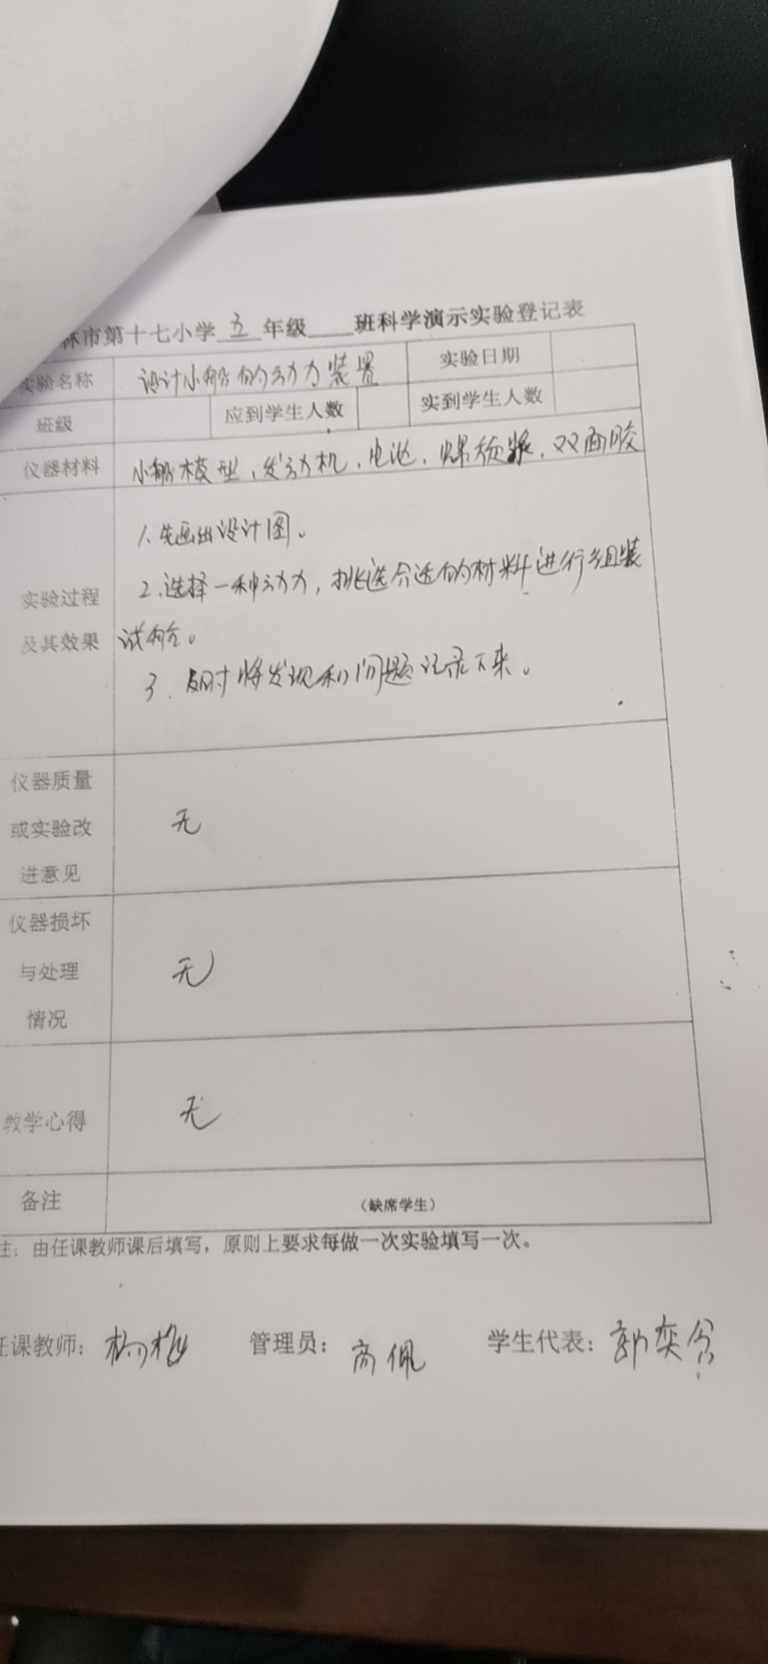 林市第十七小学 五 年级____班科学演示实验登记表
实验名称 设计小船的动力装置 实验日期
班级 应到学生人数 实到学生人数
仪器材料 小船模型、发动机、电池、螺旋桨、双面胶
1.先画出设计图。
2.选择一种动力，挑选合适的材料进行组装
实验过程
及其效果 试验。
3.及时将发现和问题记录下来。
仪器质量
或实验改 无
进意见
仪器损坏
与处理 无
情况
教学心得 无
备注 (缺席学生)
注：由任课教师课后填写，原则上要求每做一次实验填写一次。
任课教师： 管理员：高佩 学生代表：郭奕